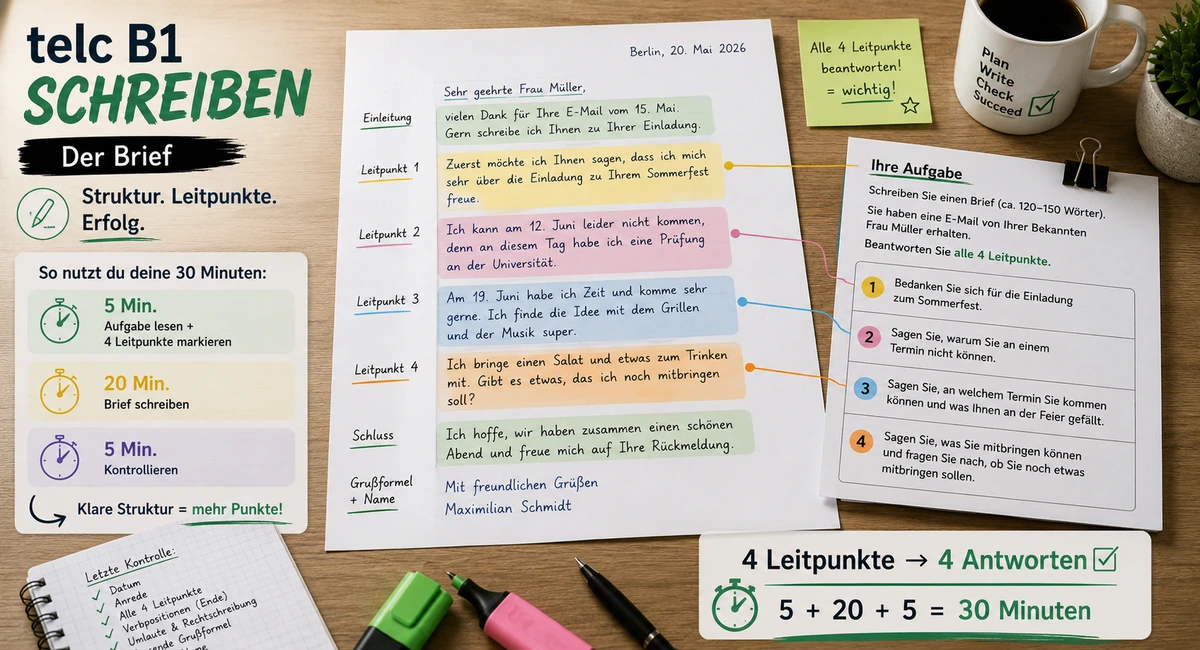 telc B1
SCHREIBEN
Der Brief
Struktur. Leitpunkte.
Erfolg.
So nutzt du deine 30 Minuten:
5 Min.
Aufgabe lesen +
4 Leitpunkte markieren
20 Min.
Brief schreiben
5 Min.
Kontrollieren
Klare Struktur = mehr Punkte!
Letzte Kontrolle:
Datum
Anrede
Alle 4 Leitpunkte
Verbpositionen (Ende)
Umlaute & Rechtschreibung
Grußformel
Berlin, 20. Mai 2026
Sehr geehrte Frau Müller,
Einleitung
vielen Dank für Ihre E-Mail vom 15. Mai.
Gern schreibe ich Ihnen zu Ihrer Einladung.
Leitpunkt 1
Zuerst möchte ich Ihnen sagen, dass ich mich
sehr über die Einladung zu Ihrem Sommerfest
freue.
Leitpunkt 2
Ich kann am 12. Juni leider nicht kommen,
denn an diesem Tag habe ich eine Prüfung
an der Universität.
Leitpunkt 3
Am 19. Juni habe ich Zeit und komme sehr
gerne. Ich finde die Idee mit dem Grillen
und der Musik super.
Leitpunkt 4
Ich bringe einen Salat und etwas zum Trinken
mit. Gibt es etwas, das ich noch mitbringen
soll?
Schluss
Ich hoffe, wir haben zusammen einen schönen
Abend und freue mich auf Ihre Rückmeldung.
Grußformel
+ Name
Mit freundlichen Grüßen
Maximilian Schmidt
Alle 4 Leitpunkte
beantworten!
= wichtig!
Plan
Write
Check
Succeed
Ihre Aufgabe
Schreiben Sie einen Brief (ca. 120–150 Wörter).
Sie haben eine E-Mail von Ihrer Bekannten
Frau Müller erhalten.
Beantworten Sie alle 4 Leitpunkte.
1 Bedanken Sie sich für die Einladung
zum Sommerfest.
2 Sagen Sie, warum Sie an einem
Termin nicht können.
3 Sagen Sie, an welchem Termin Sie kommen
können und was Ihnen an der Feier gefällt.
4 Sagen Sie, was Sie mitbringen können
und fragen Sie nach, ob Sie noch etwas
mitbringen sollen.
4 Leitpunkte → 4 Antworten
5 + 20 + 5 = 30 Minuten